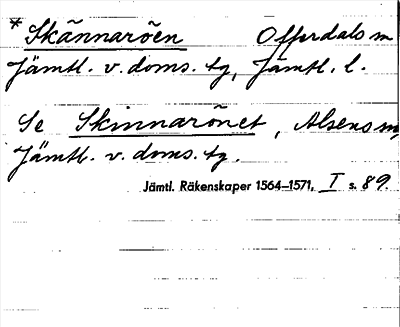 *Skännaröen Offerdals sn
Jämtl. v. doms. tg, Jämtl. l.
Se Skinnarönet, Alsens sn,
Jämtl. v. doms. tg.
Jämtl. Räkenskaper 1564–1571, I s. 89.